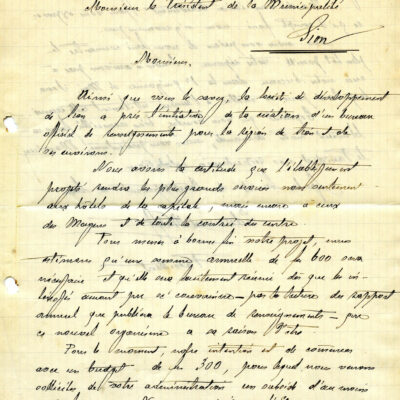 Monsieur le Président de la Municipalité
Sion
Monsieur,
Ainsi que vous le savez, la Société de développement
de Sion a pris l'initiative de la création d'un bureau
officiel de renseignements pour la région de Sion et de
ses environs.
Nous avons la certitude que l'établissement
projeté rendra les plus grands services non seulement
aux hôtels de la capitale, mais encore à ceux
des Mayens et de toute la contrée du centre.
Pour mener à bonne fin notre projet, nous
estimons qu'une somme annuelle de frs 600 sera
nécessaire et qu'elle sera facilement réunie dès que les in-
téressés auront pu se convaincre par la lecture des rapport
annuel que publiera le bureau de renseignements que
ce nouvel organisme a sa raison d'être.
Pour le moment, notre intention est de commencer
avec un budget de frs 300, pour lequel nous venons
solliciter de votre administration un subside d'au moins